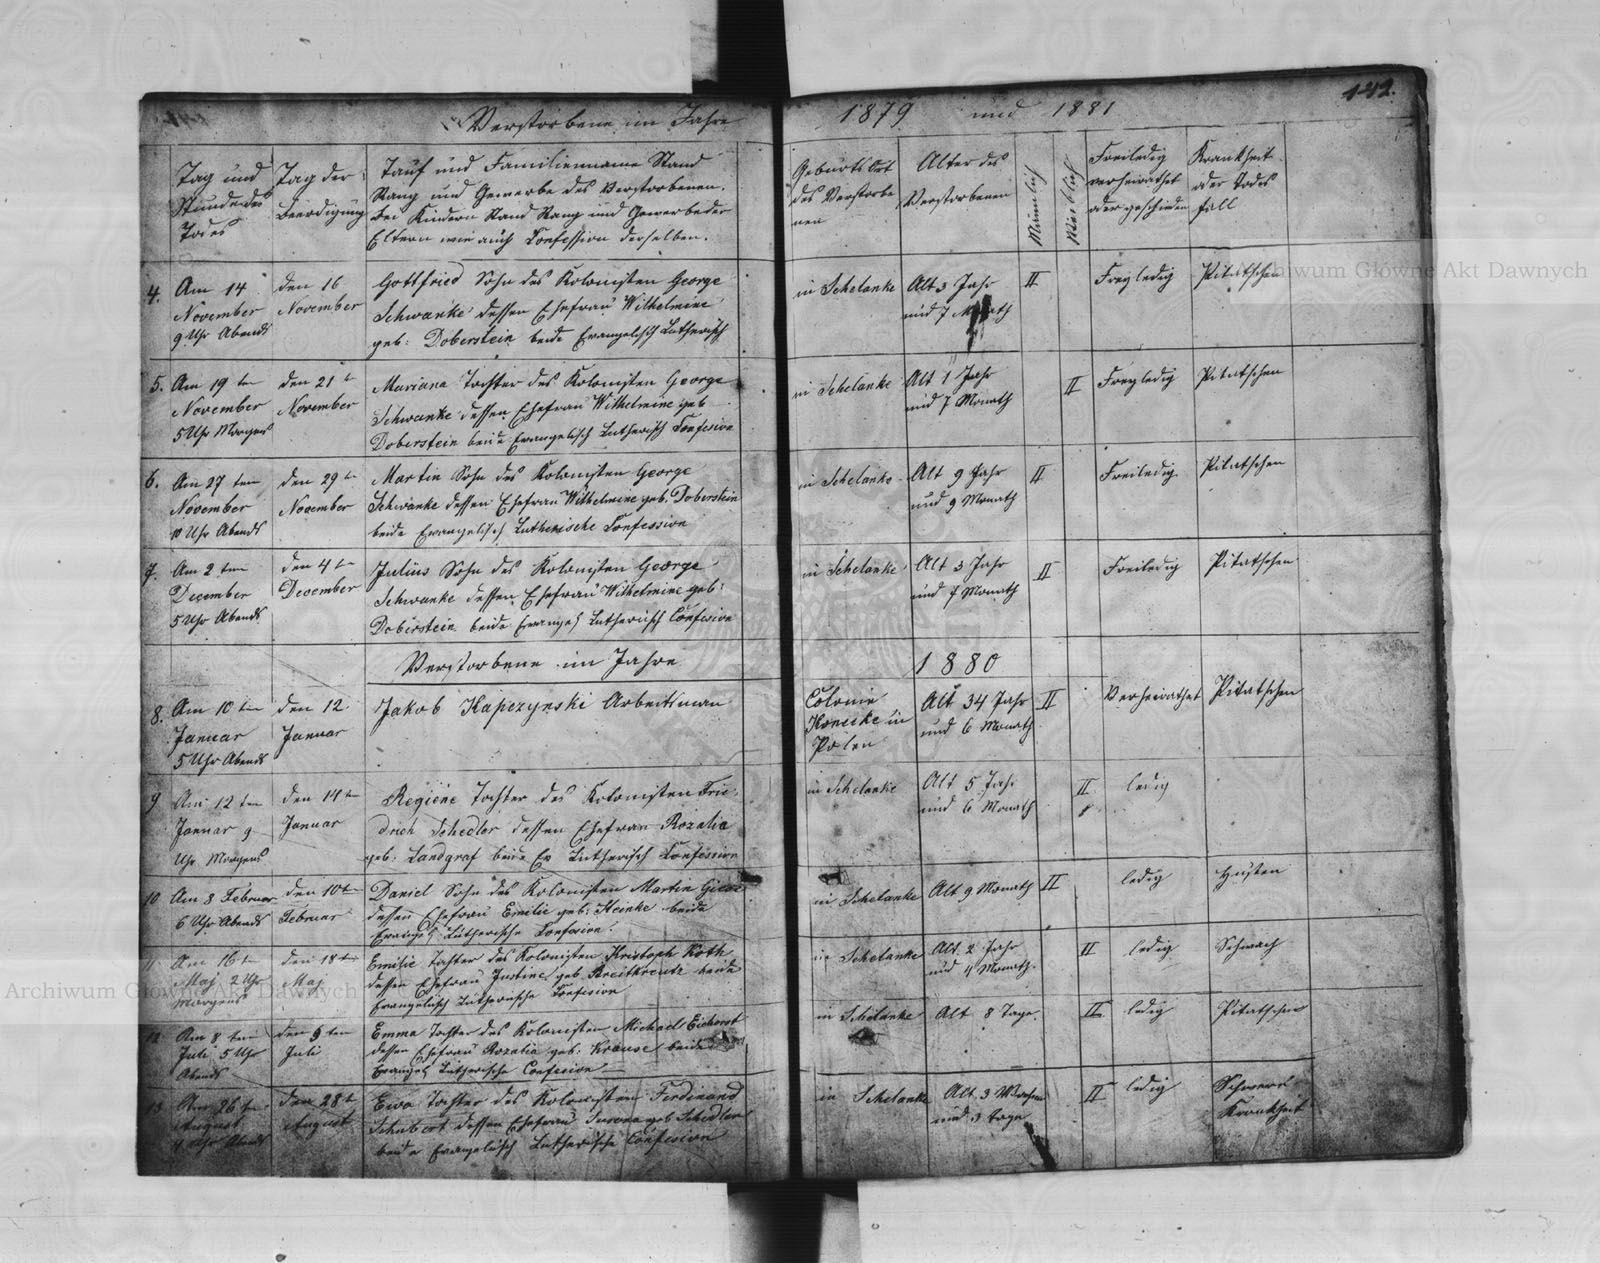 142.
Verstorbene im Jahre 1879 und 1881
Tag und
Stunde des
Todes
Tag der
Beerdigung
Tauf und Familienname Stand
Rang und Gewerbe des Verstorbenen.
bei Kindern Stand Rang und Gewerbe der
Eltern wie auch Confession derselben.
Geburts Ort
des Verstorbe
nen
Alter des
Verstorbenen
Männlich
Weiblich
Freiledig
verheirathet
oder geschieden
Krankheit
oder Todes
fall
4. Am 14
November
9 Uhr Abends
den 16
November
Gottfried Sohn des Kolonisten George
Schwanke dessen Ehefrau Wilhelmine
geb: Doberstein beide Evangelisch Lutherisch
in Schelanke
Alt 3 Jahr
und 7 Monath
II
Freyledig
Pitatschen
5. Am 19 ten
November
5 Uhr Morgens
den 21 t
November
Mariana Tochter des Kolonisten George
Schwanke dessen Ehefrau Wilhelmine geb
Doberstein beide Evangelisch Lutherisch Confesion
in Schelanke
Alt 1 Jahr
und 7 Monath
II
Freyledig
Pitatschen
6. Am 27 ten
November
10 Uhr Abends
den 29 t
November
Martin Sohn des Kolonisten George
Schwanke dessen Ehefrau Wilhelmine geb. Doberstein
beide Evangelisch Lutherische Confession
in Schelanke
Alt 9 Jahr
und 9 Monath
II
Freiledig
Pitatschen
7. Am 2 ten
December
5 Uhr Abends
den 4 t
December
Julius Sohn des Kolonisten George
Schwanke dessen Ehefrau Wilhelmine geb:
Doberstein beide Evangel Lutherisch Confesion
in Schelanke
Alt 3 Jahr
und 7 Monath
II
Freiledig
Pitatschen
Verstorbene im Jahre 1880
8. Am 10 ten
Januar
5 Uhr Abends
den 12
Januar
Jakob Kapczynski Arbeitsman
Colonie
in
Polen
Alt 34 Jahr
und 6 Monath
II
Verheirathet
Pitatschen
9 Am 12 ten
Januar 9
Uhr Morgens
den 14 ten
Januar
Regiene Tochter des Kolonisten Frie-
drich Schedler dessen Ehefrau Rozalia
geb. Landgraf beide Ev Lutherisch Confession
in Schelanke
Alt 5 Jahr
und 6 Monath
II
ledig
10 Am 8 Februar
6 Uhr Abends
den 10 t
Februar
Daniel Sohn des Kolonisten Martin
dessen Ehefrau Emilie geb: Heinke beide
Evangel Lutherische Confesion.
in Schelanke
Alt 9 Monath
II
ledig
Husten
11. Am 16 t
Maj 2 Uhr
Morgens
den 18 t
Maj
Emilie Tochter des Kolonisten Kristoph Roth
dessen Ehefrau Justine geb Breitkreutz beide
Evangelisch Lutherische Confesion
in Schelanke
Alt 2 Jahr
und 4 Monath.
II
ledig
Schwach
12 Am 8 ten
Juli 5 Uhr
Abends
den 9 ten
Juli
Emma Tochter des Kolonisten Michael Eichorst
dessen Ehefrau Rozalia geb: Krause beide
Evangel Lutherische Confesion
in Schelanke
Alt 8 Tage.
II
ledig
Pitatschen
13 Am 26 t
August
Uhr Abends
den 28 t
August
Ewa Tochter des Kolonisten Ferdinand
Schubert dessen Ehefrau geb Schedler
beide Evangelisch Lutherische Confesion
in Schelanke
Alt 3 Wochen
und 3 tage
II
ledig
Schwere
Krankheit
Archiwum Główne Akt Dawnych
Archiwum Główne Akt Dawnych